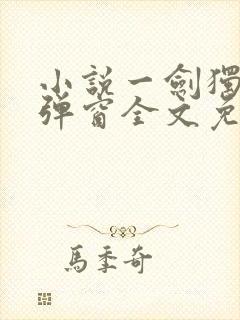 小說一劍獨
彈窗全文免
馬季奇